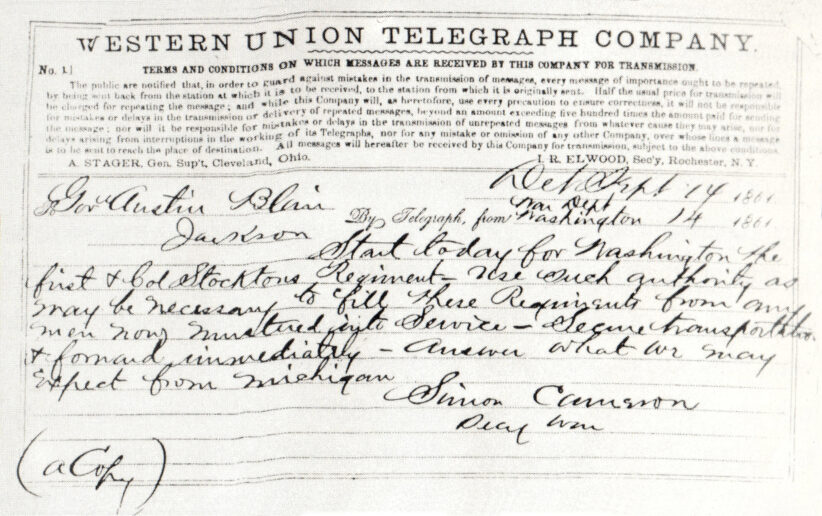 WESTERN UNION TELEGRAPH COMPANY.
No. 1.
TERMS AND CONDITIONS ON WHICH MESSAGES ARE RECEIVED BY THIS COMPANY FOR TRANSMISSION.
The public are notified that, in order to guard against mistakes in the transmission of messages, every message of importance ought to be repeated,
by being sent back from the station at which it is to be received, to the station from which it is originally sent. Half the usual price for transmission will
be charged for repeating the message; and while this Company will, as heretofore, use every precaution to ensure correctness, it will not be responsible
for mistakes or delays in the transmission or delivery of repeated messages, beyond an amount exceeding five hundred times the amount paid for sending
the message; nor will it be responsible for mistakes or delays in the transmission of unrepeated messages from whatever cause they may arise, nor for
delays arising from interruptions in the working of its Telegraphs, nor for any mistake or omission of any other Company, over whose lines a message
is to be sent to reach the place of destination. All messages will hereafter be received by this Company for transmission, subject to the above conditions.
A. STAGER, Gen. Sup't, Cleveland, Ohio. I. R. ELWOOD, Sec'y, Rochester, N. Y.
Det Sept 14 1861
War Dept
By Telegraph, from Washington 14 1861
To Gov Austin Blair
Jackson
Start today for Washington the
first & Col Stocktons Regiment - use such authority as
may be necessary to fill these Regiments from any
men now mustered into Service - Secure transportation
& forward immediately - Answer what we may
Expect from Michigan
Simon Cameron
Secy War
(a Copy)